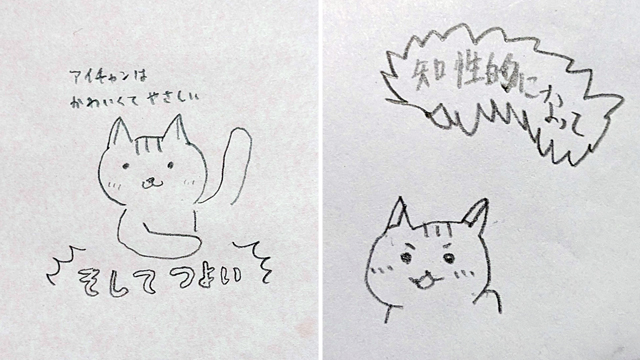 アイチャンは
かわいくて やさしい
そして つよい
知性的に
なって